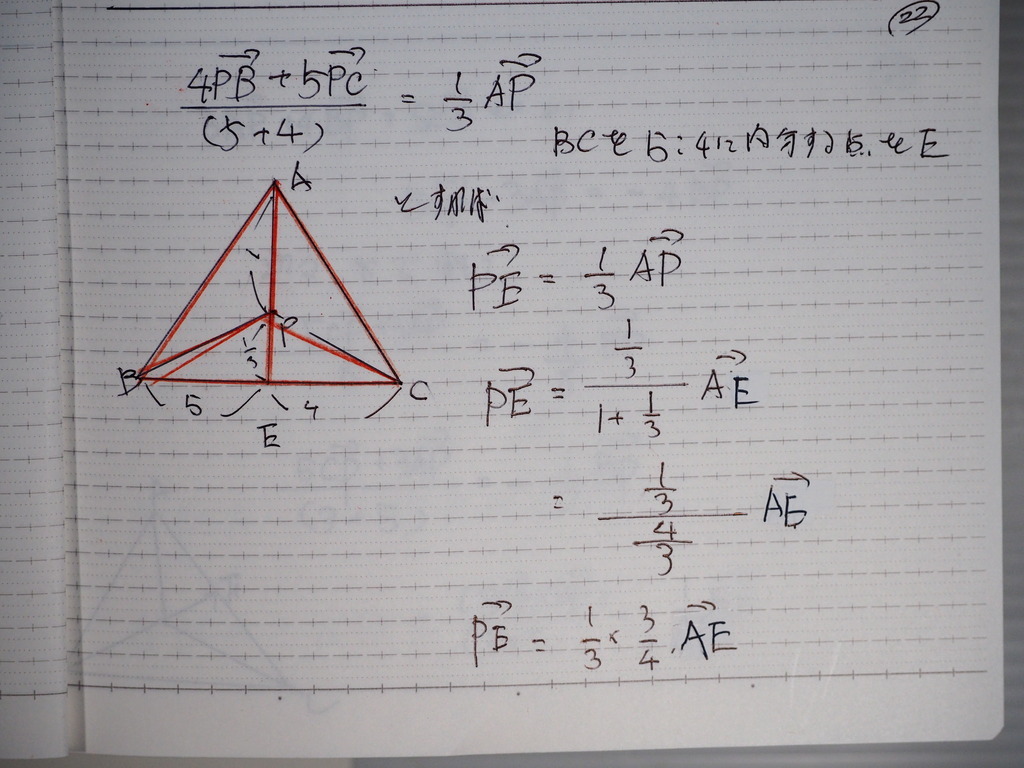 23
(4PB→ + 5PC→) / (5+4) = 1/3 AP→
BCを5:4に内分する点をE
とすれば
A
1
P
1/3
B
C
5
4
E
PE→ = 1/3 AP→
PE→ = (1/3) / (1+1/3) AE→
= (1/3) / (4/3) AE→
PE→ = 1/3 × 3/4 . AE→